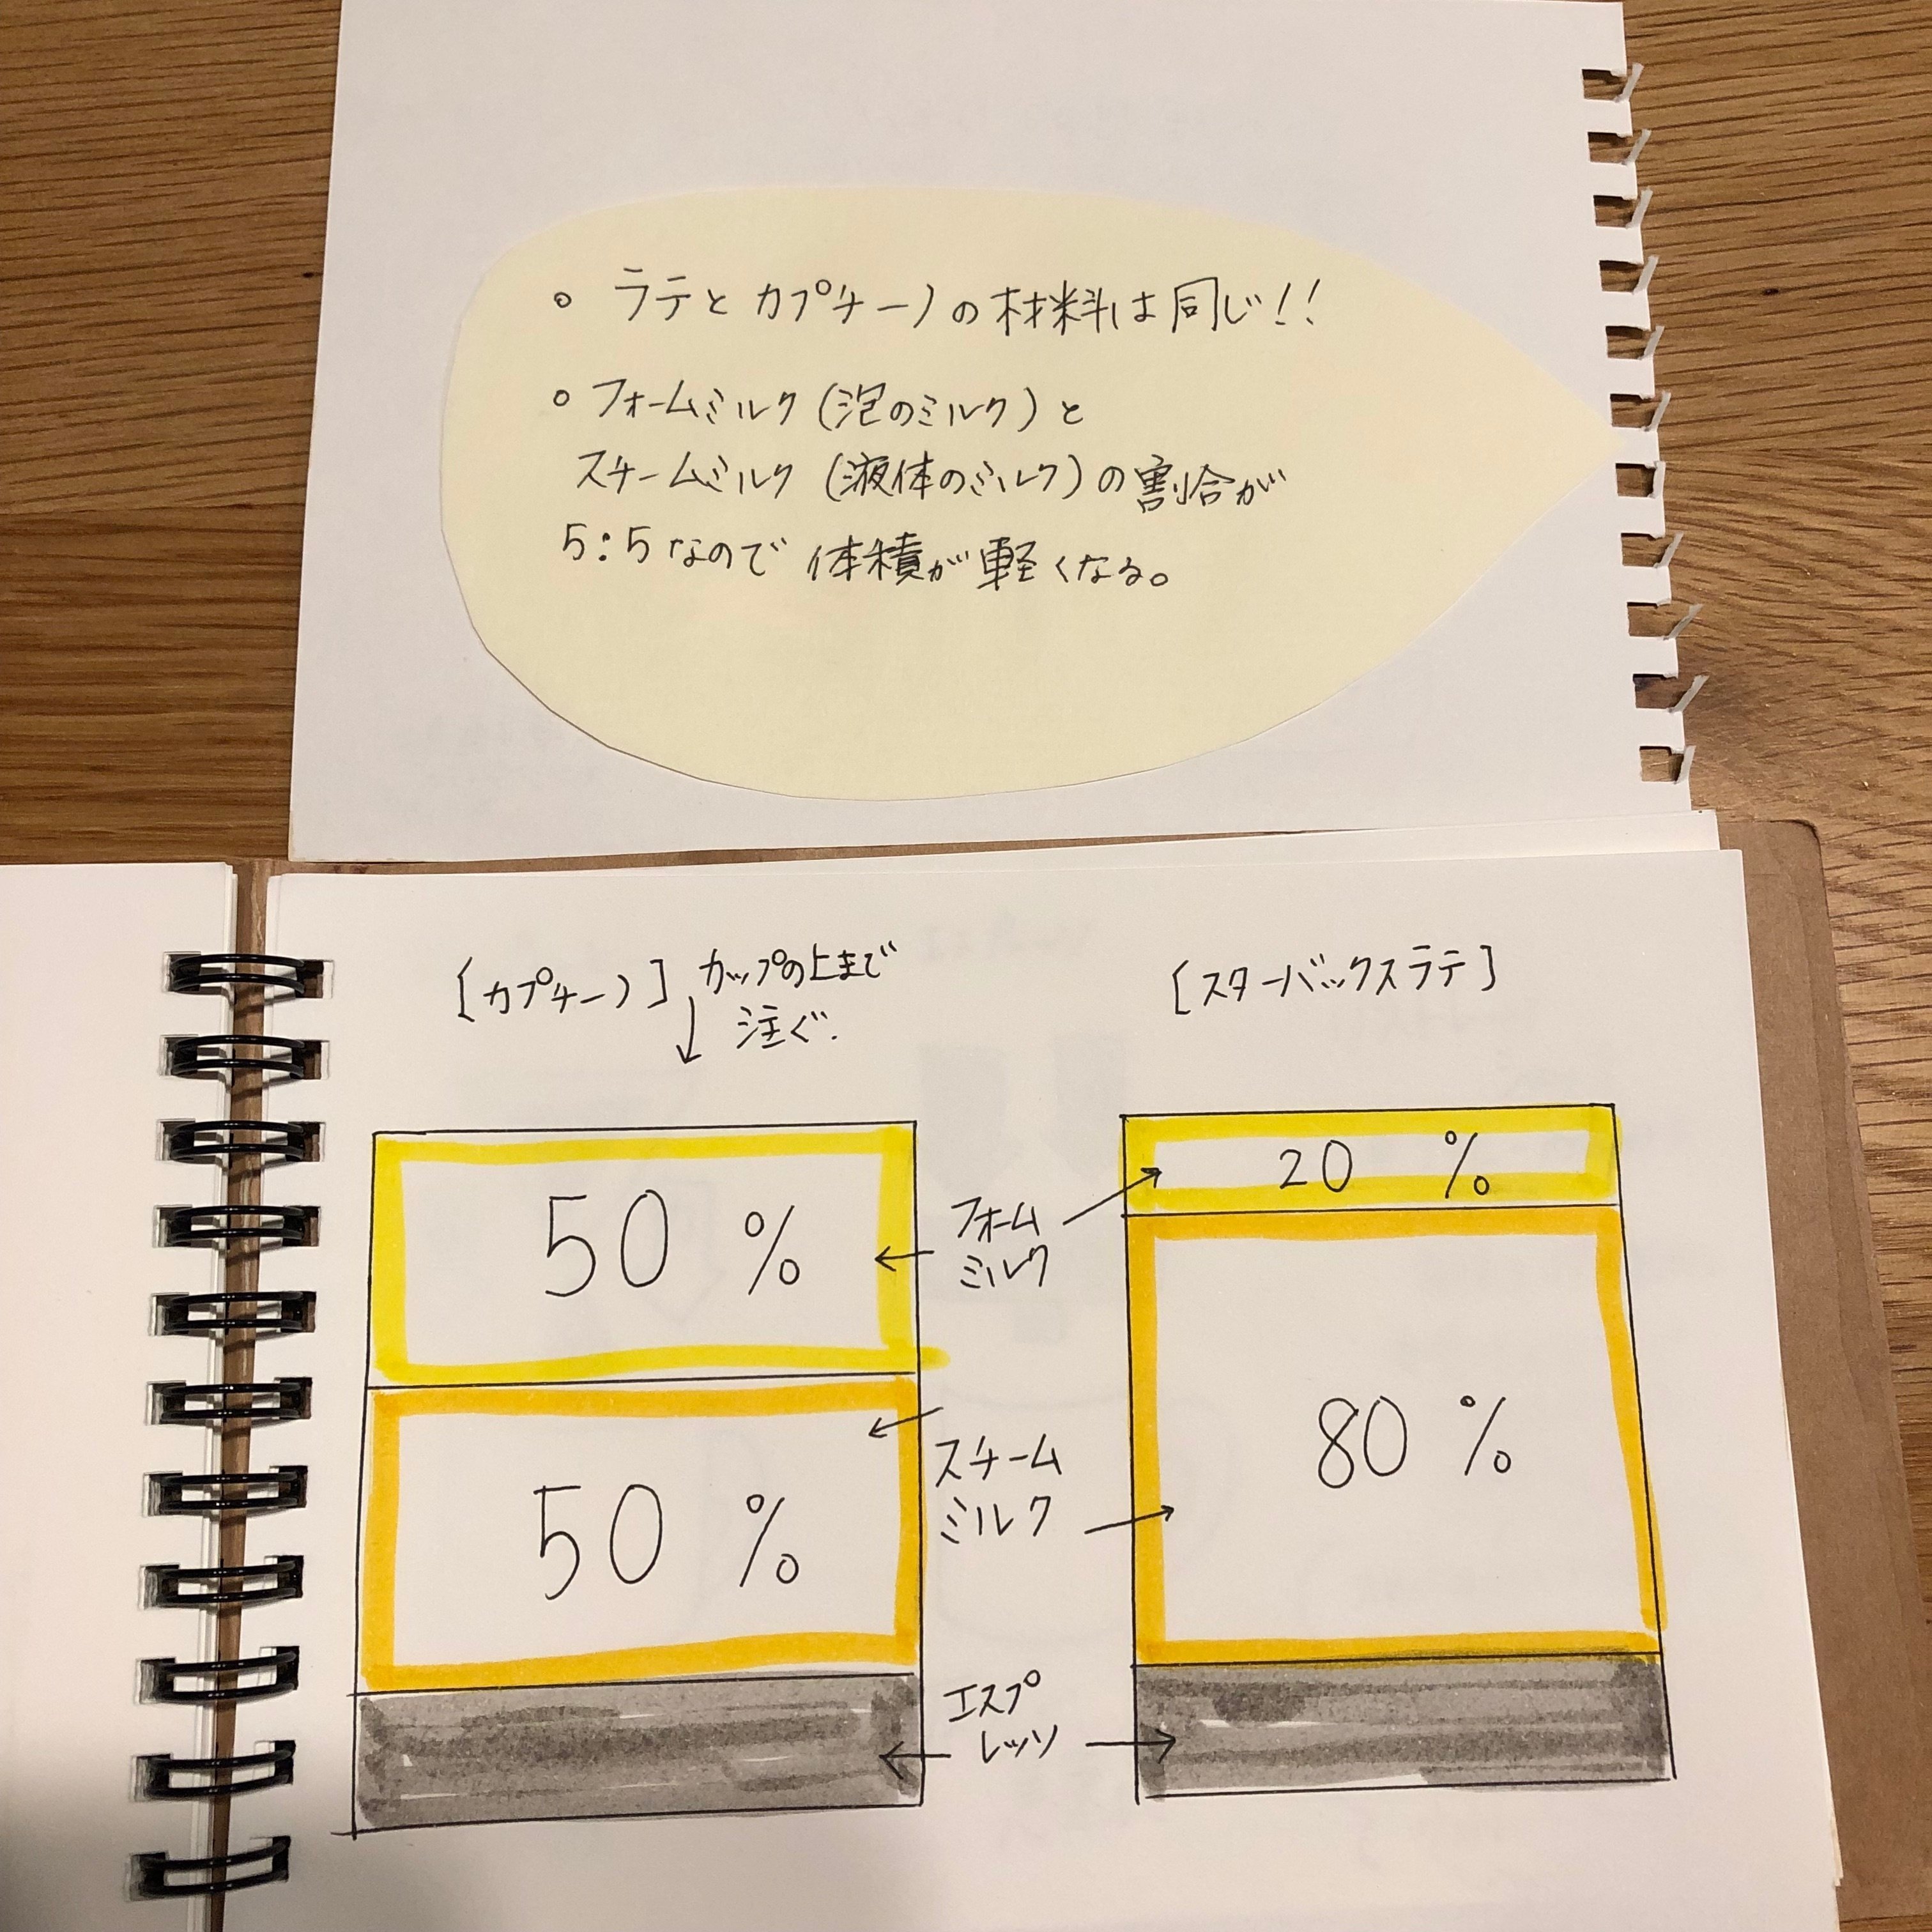 ○ ラテとカプチーノの材料は同じ!!
○ フォームミルク(泡のミルク)と
スチームミルク(液体のミルク)の割合が
5:5なので体積が軽くなる。
[カプチーノ] カップの上まで
↓ 注ぐ.
[スターバックスラテ]
50 %
フォーム
ミルク
20 %
50 %
スチーム
ミルク
80 %
エスプ
レッソ